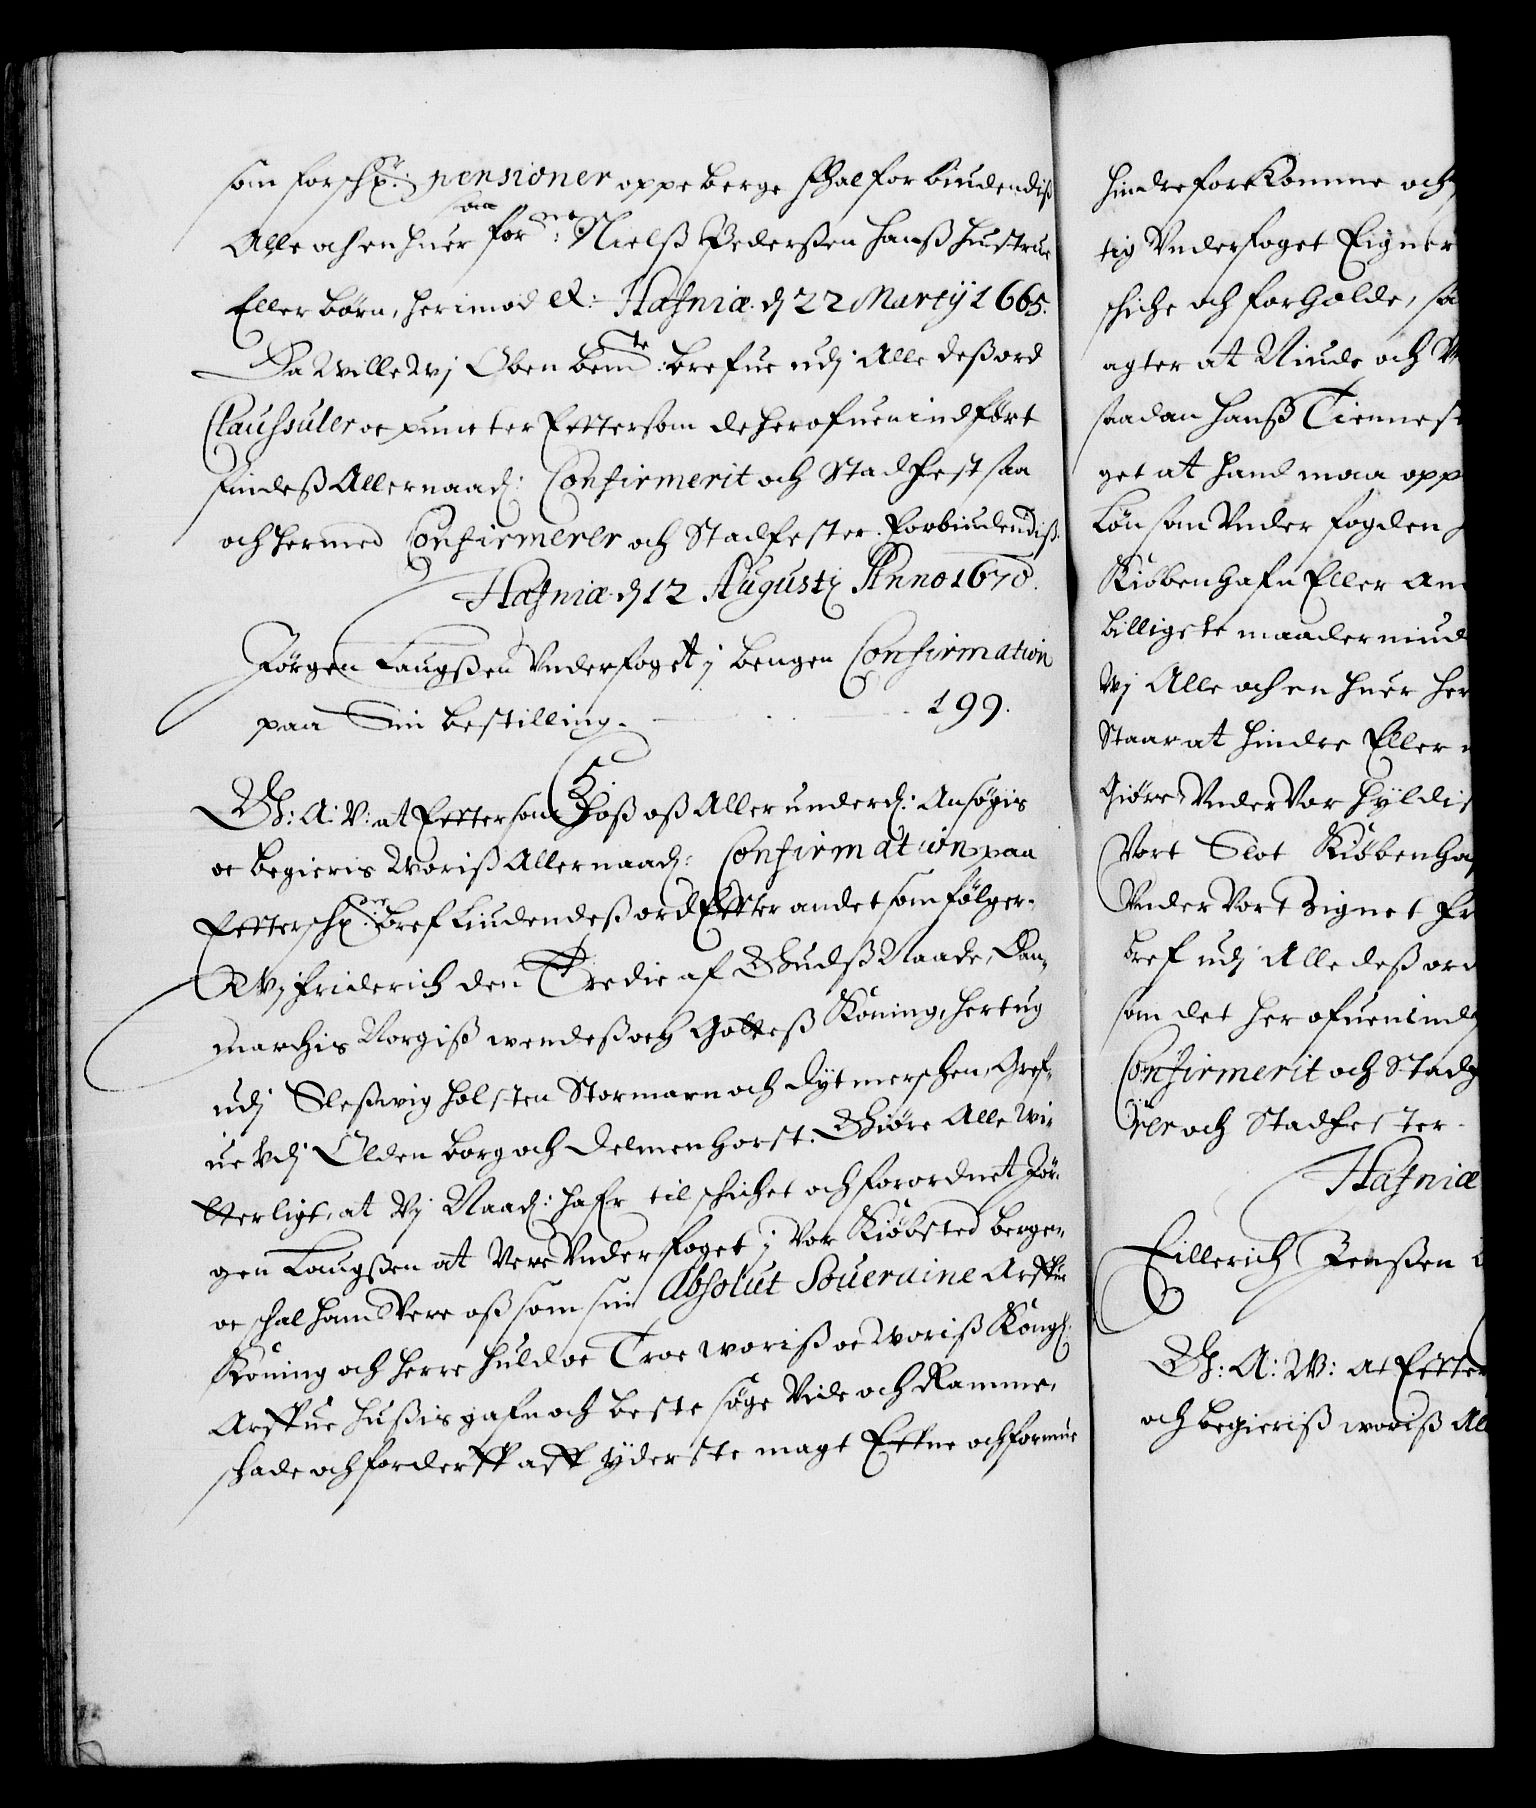 som forschr: pensioner oppeberge schal forbiudendiß
Alle och en huer saa forne: Nielß Pederßen hanß hustrue
Eller børn, herimod etc: Hafniæ. d 22 Martij 1665.
Da Wille Wj Oben bemte: brefue udj Alle deß ord
Claussuler oc puncter Eftersom de her ofuen indført
findeß Allernaad: Confirmerit och Stadfest saa
och hermed Confirmerer och Stadfester. Forbiudendiß.
Hafniæ. d 12 Augustj Anno 1670.
Jørgen Laugßen Underfoget j bergen Confirmation
paa Sin bestilling. 199.
G: A: V: at Eftersom hoß oß Allerunderd: Ansøgis
oc begieris Woriß Allernaad: Confirmation paa
Efterschr: bref liudendeß ord Efter andet som følger.
Wj Friderich den Tredie af Gudß Naade, Dan-
marchis Norgiß wendeß och Gotteß Koning, hertug
udj Sleßwig holsten Stormarn och Dytmerschen, Gref-
ue Udj Oldenborg och Delmenhorst. Giøre Alle Wi-
tterligt, at Vj Naad: hafr tilschichet och forordnet Jør-
gen Laugßen at Vere Underfoget j Vor Kiøbsted bergen
oc schal hand Vere oß som sin Absolut Souveraine Arffue
Koning och herre huld oc Troe woriß oc Woriß Kongl:
Arffue hußis gafn och beste søge Vide och Ramme,
schade och forderff aff yderste magt Efne och formue
hindre forekomme och
tig Underfoget Eigner
schiche och forholde, sa
agter at Niude och
saadan hanß Tiennest
get at hand maa opp
Løn som Underfogden
Kiøbenhafn Eller An
billigste maader niud
Wj Alle och en huer her
Staar at hindre Eller
Giøre Under Vor hyldis
Vort Slot Kiøbenhaf
Under Vort Zignet Fr
bref udj Alle deß ord
som det her ofuen ind
Confirmerit och Stadf
rer och Stadfester.
Hafniæ
Eillerich Jenßen
G: A: W: at Efter
och begieriß woriß All